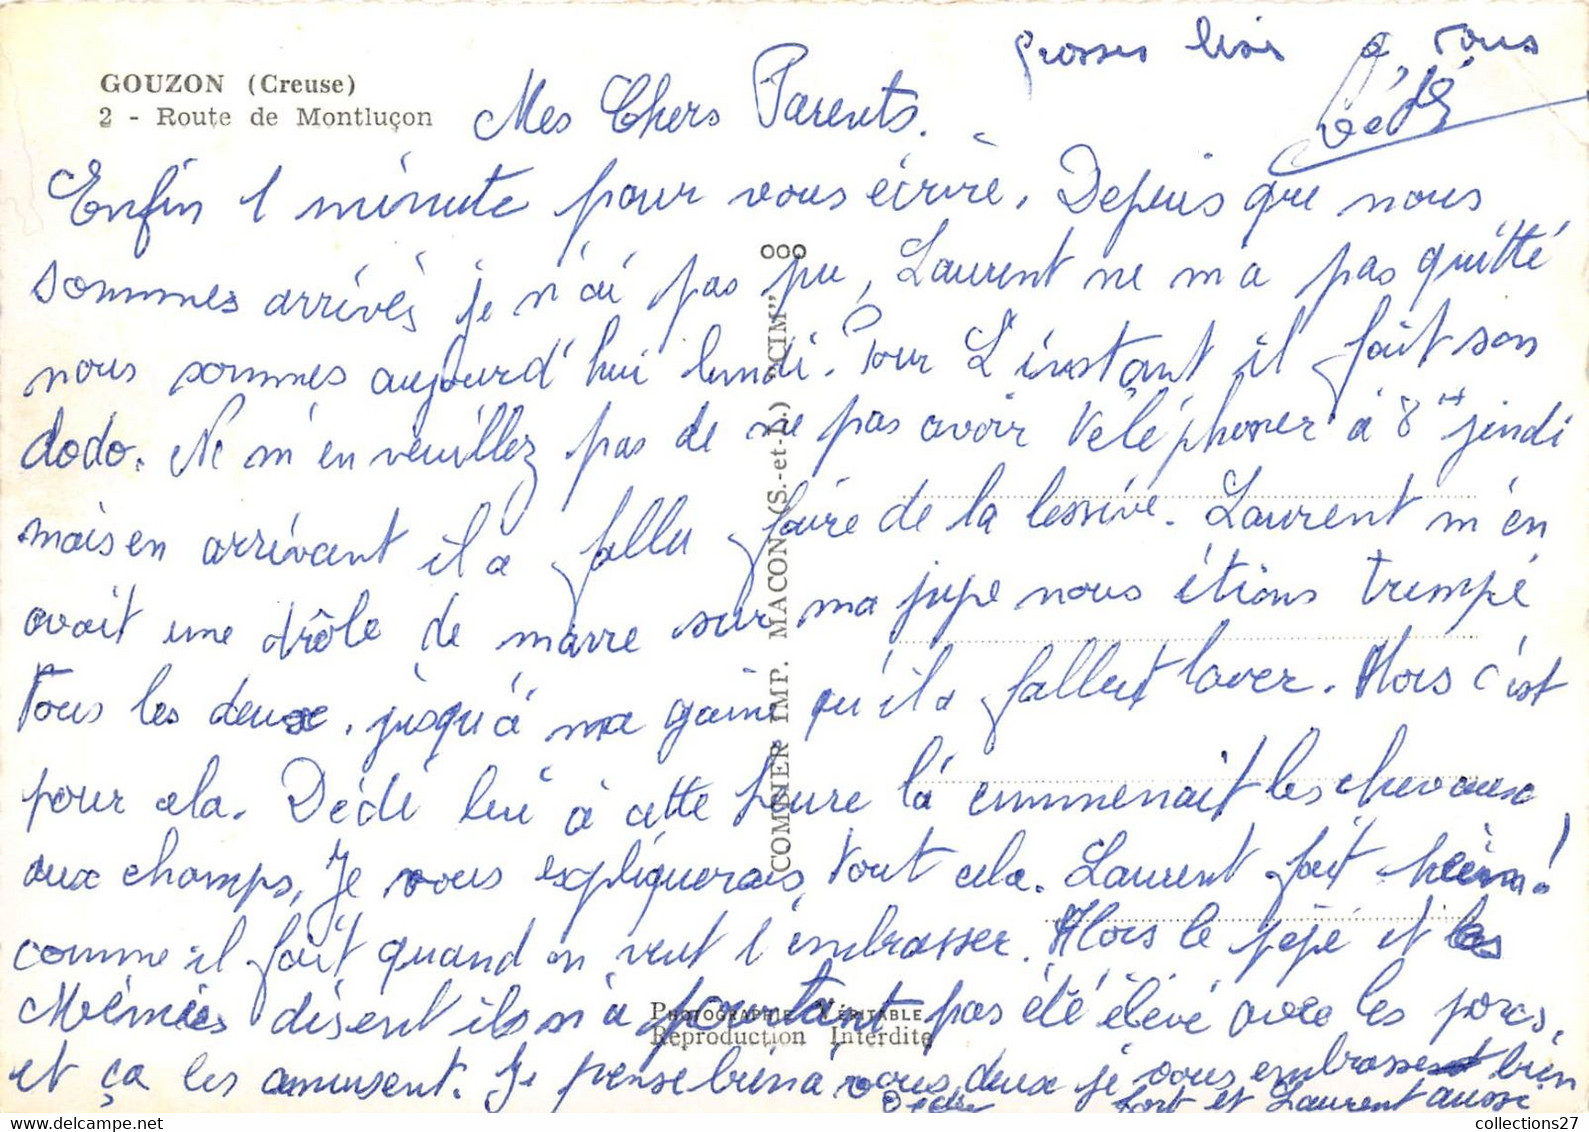 GOUZON (Creuse)
2 - Route de Montluçon
grosses bises à vous
Dédé
Mes Chers Parents.
Enfin 1 minute pour vous écrire. Depuis que nous
sommes arrivés je n'ai pas pu, Laurent ne m a pas quitté
nous sommes aujourd'hui lundi. Pour L'instant il fait son
dodo. Ne m'en veuillez pas de ne pas avoir téléphoner à 8 H jeudi
mais en arrivant il a fallu faire de la lessive. Laurent m'en
avait une drôle de marre sur ma jupe nous étions trempé
tous les deux. jusqu'à ma gaine qu'il a fallut laver. Alors c'est
pour cela. Dédé lui à cette heure là emmenait les chevaux
aux champs, Je vous expliquerais tout cela. Laurent fait hein!
comme il fait quand on veut l'embrasser. Alors le pépé et les
Mémées disent ils n'a pourtant pas été élévé avec les porcs.
et ça les amusent. Je pense bien à vous deux je vous embrasse bien
fort et Laurent aussi
Dédé
COMBIER IMP. MACON (S.-et-L.) "CIM"
PHOTOGRAPHIE VÉRITABLE
Reproduction Interdite
collections27